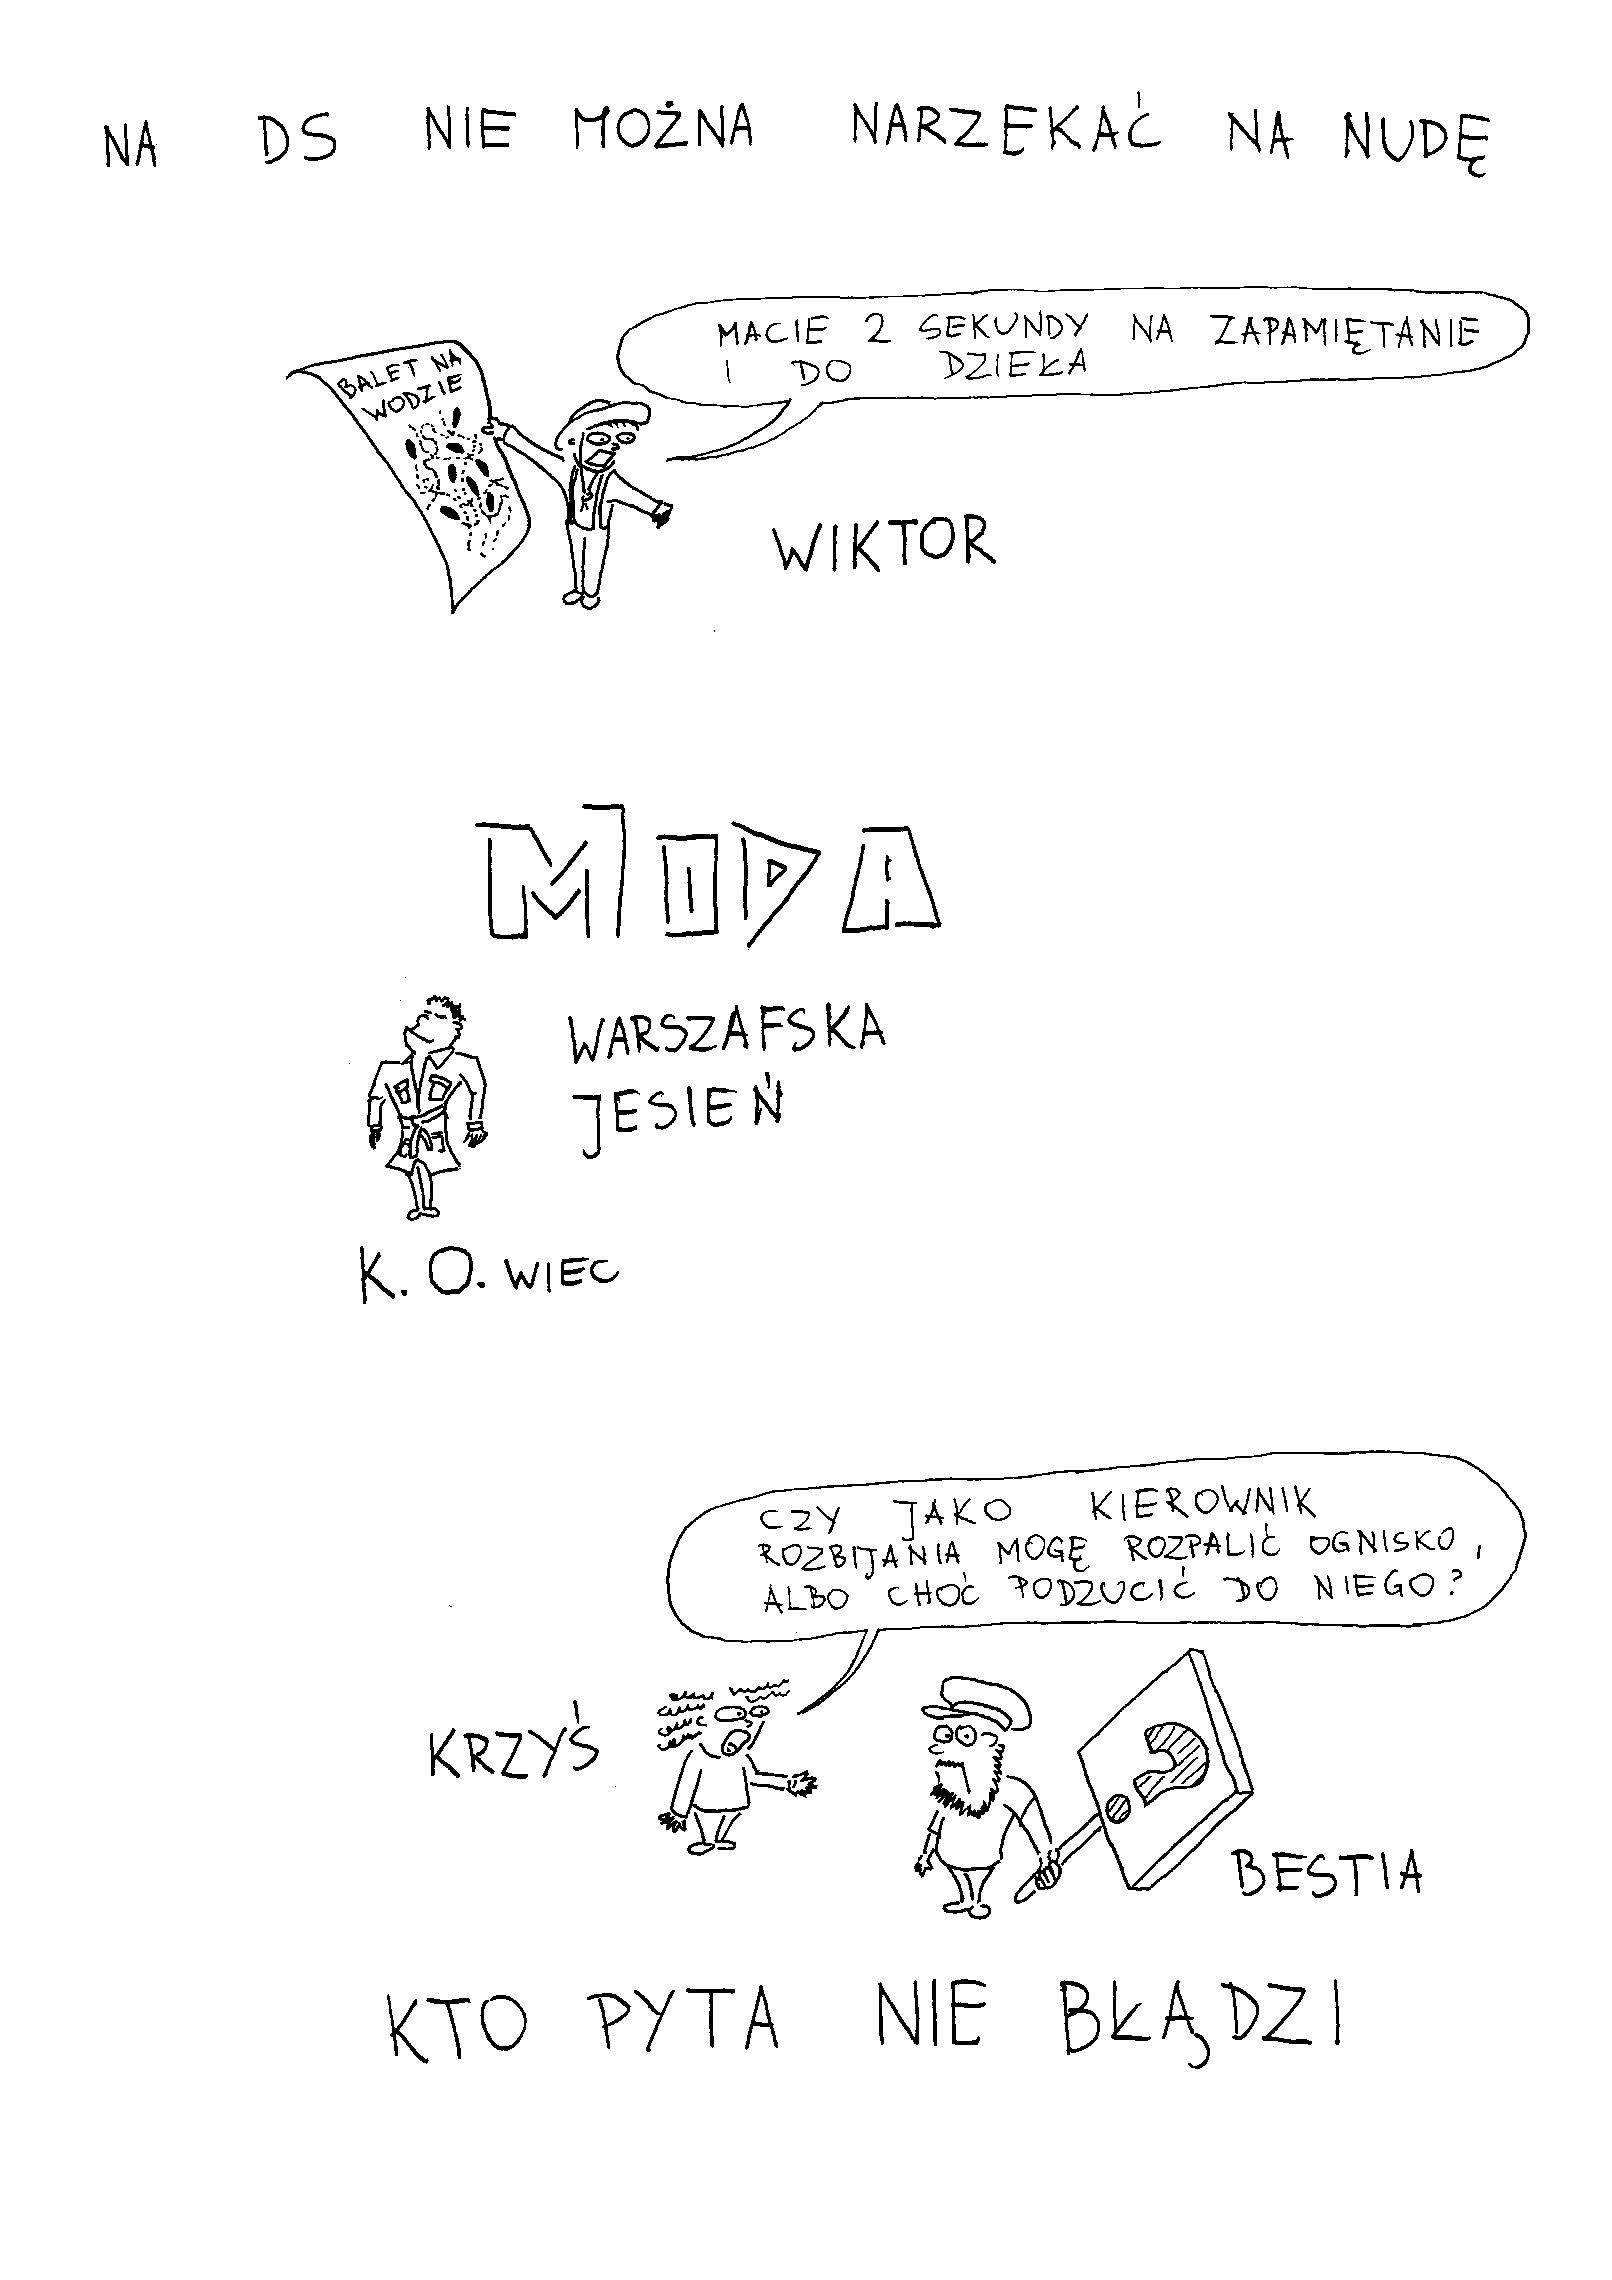 NA DS NIE MOŻNA NARZEKAĆ NA NUDĘ
MACIE 2 SEKUNDY NA ZAPAMIĘTANIE
I DO DZIEŁA
BALET NA
WODZIE
WIKTOR
MODA
WARSZAFSKA
JESIEŃ
K. O. WIEC
CZY JAKO KIEROWNIK
ROZBIJANIA MOGĘ ROZPALIĆ OGNISKO,
ALBO CHOĆ PODZUCIĆ DO NIEGO?
KRZYŚ
BESTIA
KTO PYTA NIE BŁĄDZI